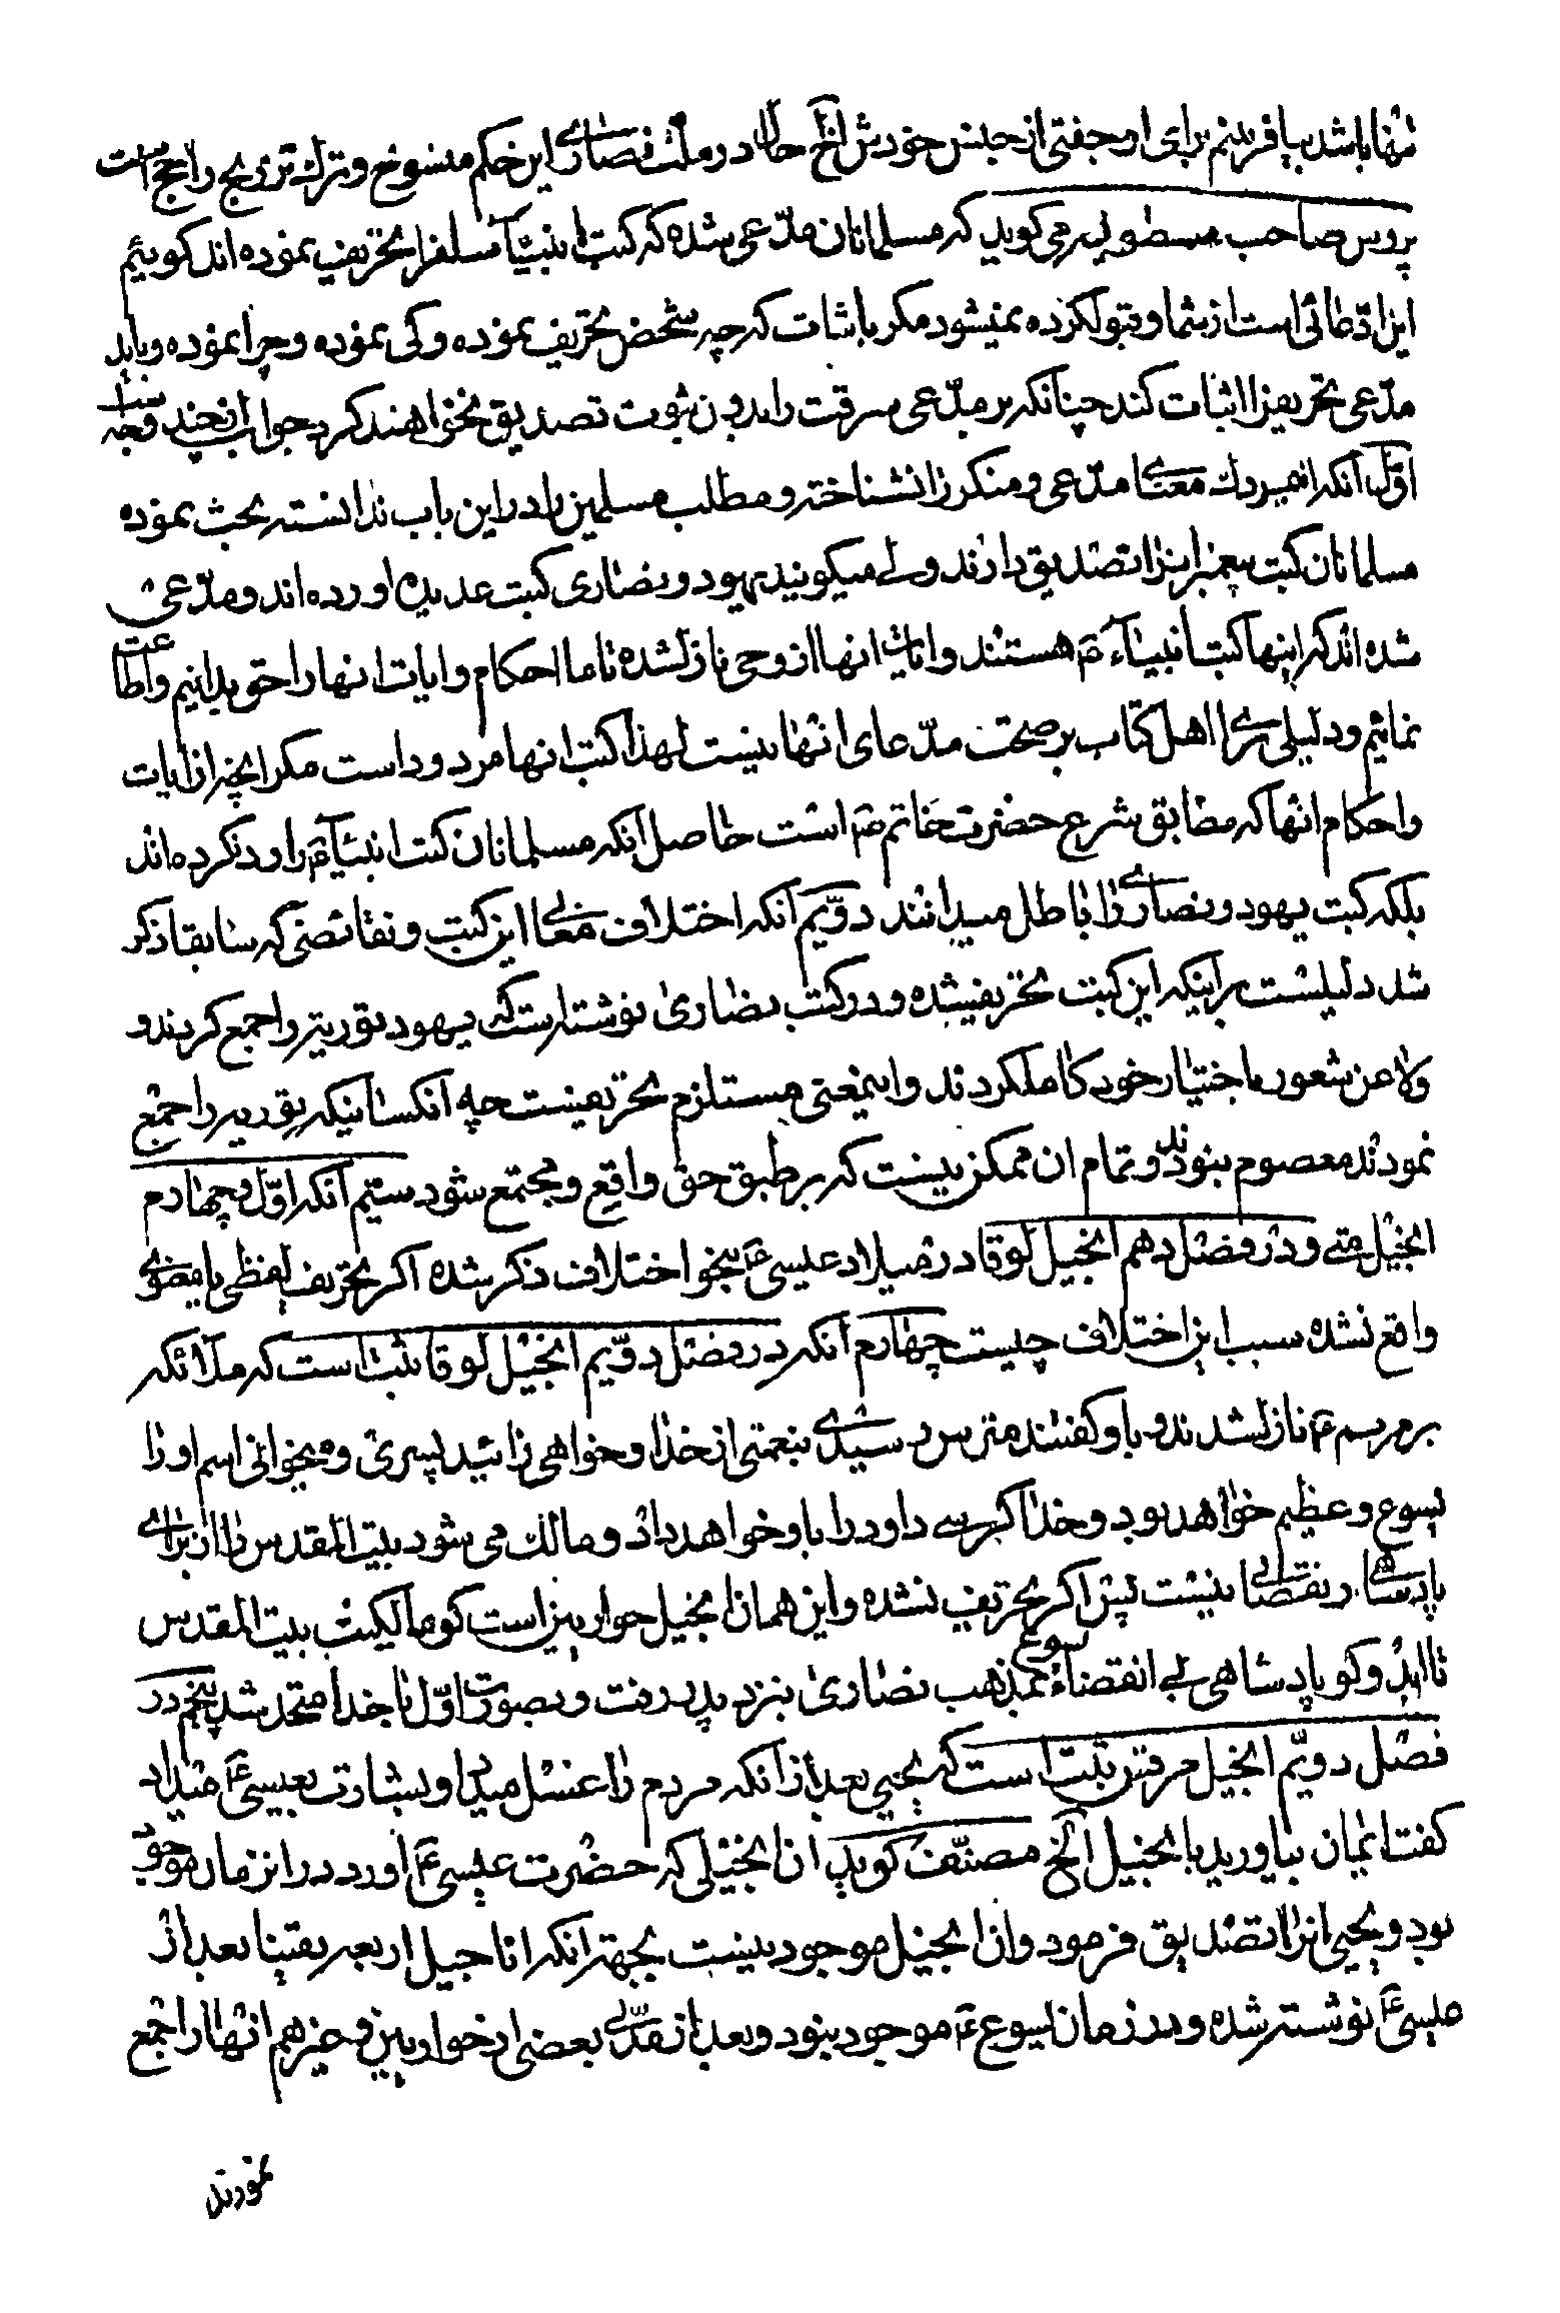 تنها باشد بیافرینم برای او جفتی از جنس خودش الخ حالا در ملت نصاری این حکم منسوخ و ترک تزویج راجح است
پروس صاحب مسطور میگوید که مسلمانان مدّعی شده که کتب انبیاء سلف را تحریف نموده اند گوئیم
این ادّعائی است از شما و قبول کرده نمیشود مگر باثبات که چه شخص تحریف نموده و کی نموده و چرا نموده و باید
مدّعی تحریف را اثبات کند چنانکه بر مدّعی سرقت را بدون ثبوت تصدیق نخواهند کرد جواب از چند وجه است
اوّل آنکه انمیردک معنی مدّعی و منکر را نشناخته و مطلب مسلمین را در این باب ندانسته بحث نموده
مسلمانان کتب پیغمبران را تصدیق دارند ولی میگویند یهود و نصاری کتب عدیده اورده اند و مدّعی
شده اند که اینها کتب انبیاء ع هستند و ایات انها از وحی نازل شده تا ما احکام و ایات انها را حق بدانیم و اطاعت
نمائیم و دلیلی برای اهل کتاب بر صحت مدّعای انها نیست لهذا کتب انها مردود است مگر انچه از ایات
و احکام انها که مطابق شرع حضرت خاتم ص است حاصل انکه مسلمانان کتب انبیاء ع را رد نکرده اند
بلکه کتب یهود و نصاری را باطل میدانند دوّیم آنکه اختلاف معانی این کتب و نقائضی که سابقا ذکر
شد دلیلست بر اینکه این کتب تحریف شده و در کتب نصاری نوشته است که یهود توریة را جمع کردند و
ولا عن شعور باختیار خود کامل کردند و این معنی مستلزم تحریفست چه آنکسانیکه توریة را جمع
نمودند معصوم نبودند و تمام ان ممکن نیست که بر طبق حق واقع و مجتمع شود سیّم آنکه اوّل و چهارم
انجیل متی و در فصل دهم انجیل لوقا در میلاد عیسی ع بنحو اختلاف ذکر شده اگر تحریف لفظی یا معنوی
واقع نشده سبب این اختلاف چیست چهارم آنکه در فصل دوّیم انجیل لوقا ثبت است که ملائکه
بر مریم ع نازل شدند و باو گفتند مترس رسیدی بنعمتی از خدا و خواهی زائید پسری و میخوانی اسم او را
یسوع و عظیم خواهد بود و خدا کرسی داود را باو خواهد داد و مالک می شود بیت المقدس را از برای
پادشاهی او نقصانی نیست پس اگر تحریف نشده و این همان انجیل حواریین است کو مالکیت بیت المقدس
تا ابد و کو پادشاهی بی انقضاء یسوع بمذهب نصاری بنزد پدر رفت و بصورت اوّل با خدا متحد شد پنجم در
فصل دوّیم انجیل مرقس ثبت است که یحیی بعد از انکه مردم را غسل میداد و بشارت بعیسی ع میداد
گفت ایمان بیاورید بانجیل الخ مصنّف گوید ان انجیلی که حضرت عیسی ع اورد در انزمان موجود
بود و یحیی انرا تصدیق فرمود و ان انجیل موجود نیست بجهة انکه اناجیل اربعه یقینا بعد از
عیسی ع نوشته شده و در زمان یسوع ع موجود نبود و بعد از مدّتی بعضی از حواریین و غیرهم انها را جمع
نمودند